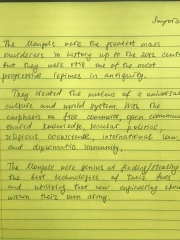 The Mongols were the greatest mass
murderers in history up to the 20th century
but they were still one of the most
progressive regimes in antiquity.
They created the nucleus of a universal
culture and world system. With the
emphasis on free commerce, open communication
shared knowledge, secular politics,
religious coexistence, international law
and diplomatic immunity.
The Mongols were genius at finding/stealing
the best technologies of their foes
and utilizing that new engineering
within their own army.